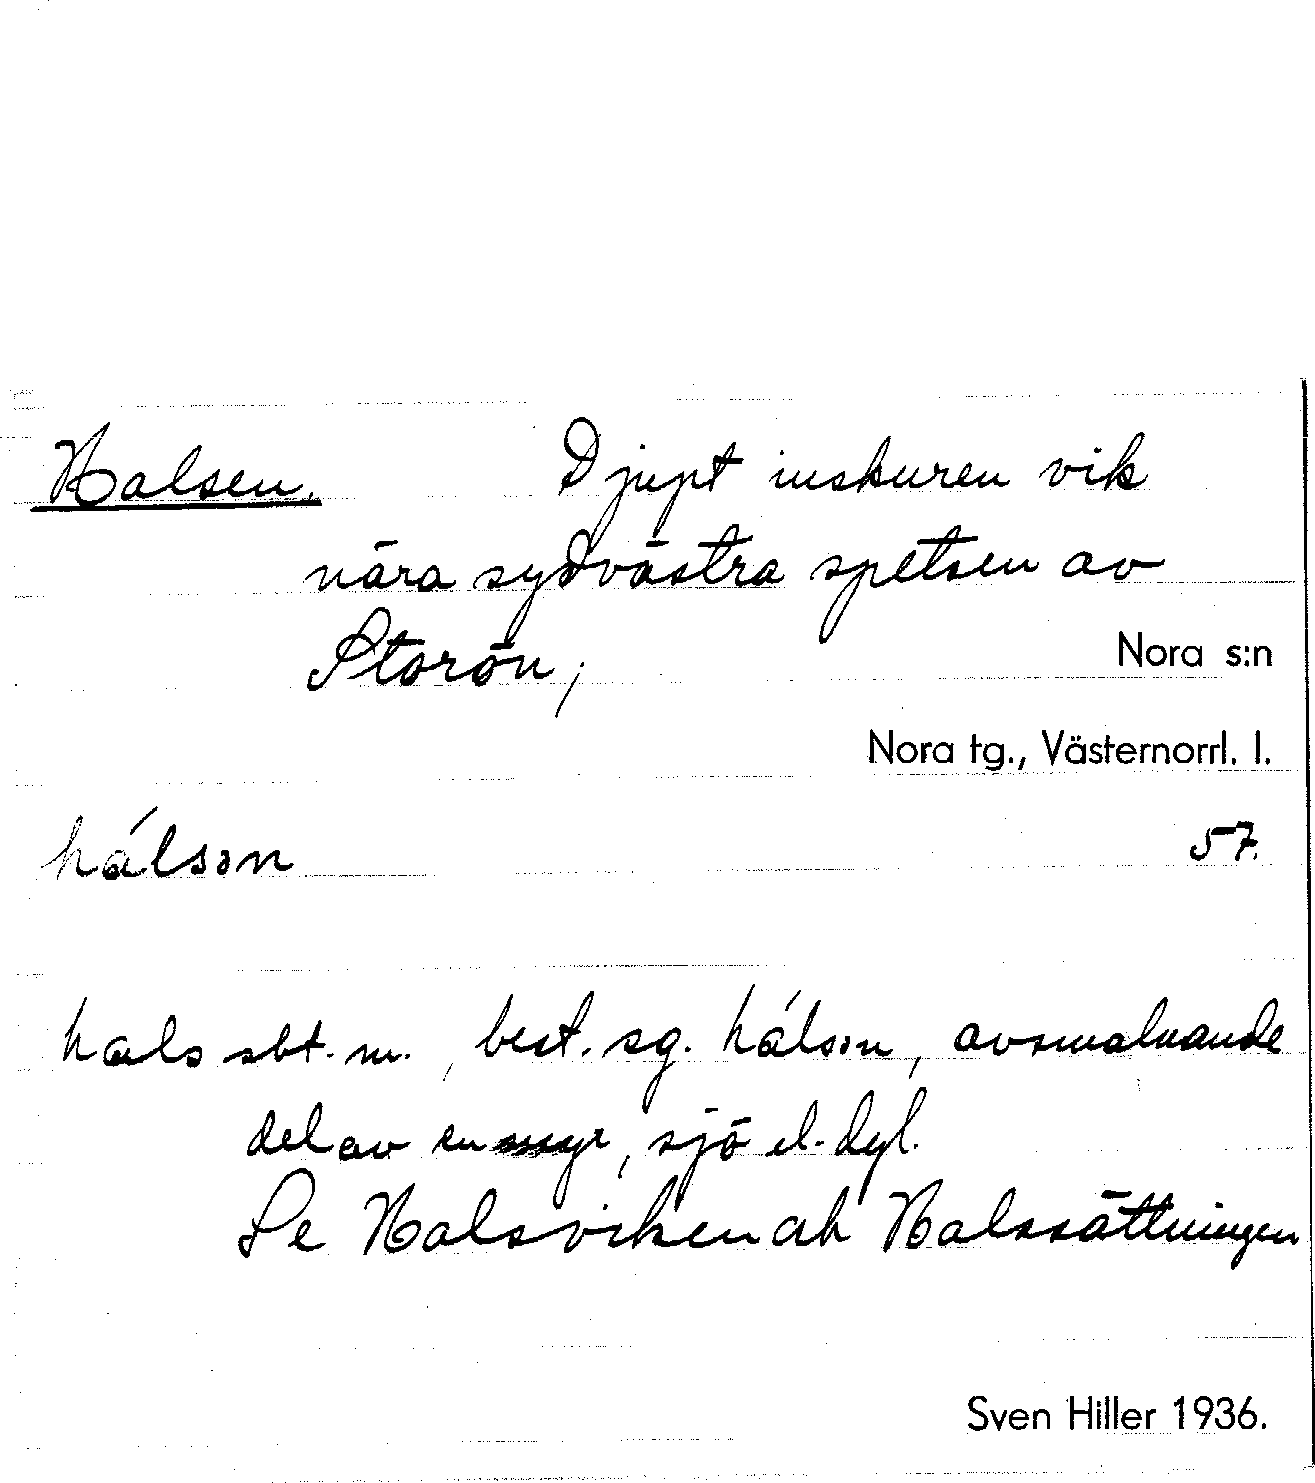 Halsen. Djupt inskuren vik
nära sydvästra spetsen av
Storön;
Nora s:n
Nora tg., Västernorrl. l.
hálsən 57.
hals sbt. m., best. sg. hálsən, avsmalnande
del av en myr, sjö el. dyl.
Se Halsviken ock Halssättningen
Sven Hiller 1936.